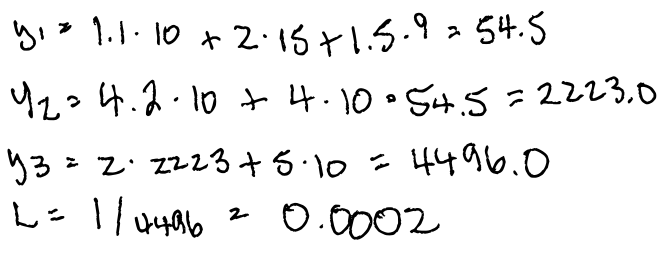 y1 = 1.1 · 10 + 2 · 15 + 1.5 · 9 = 54.5
y2 = 4.2 · 10 + 4 · 10 · 54.5 = 2223.0
y3 = 2 · 2223 + 5 · 10 = 4496.0
L = 1/4496 = 0.0002